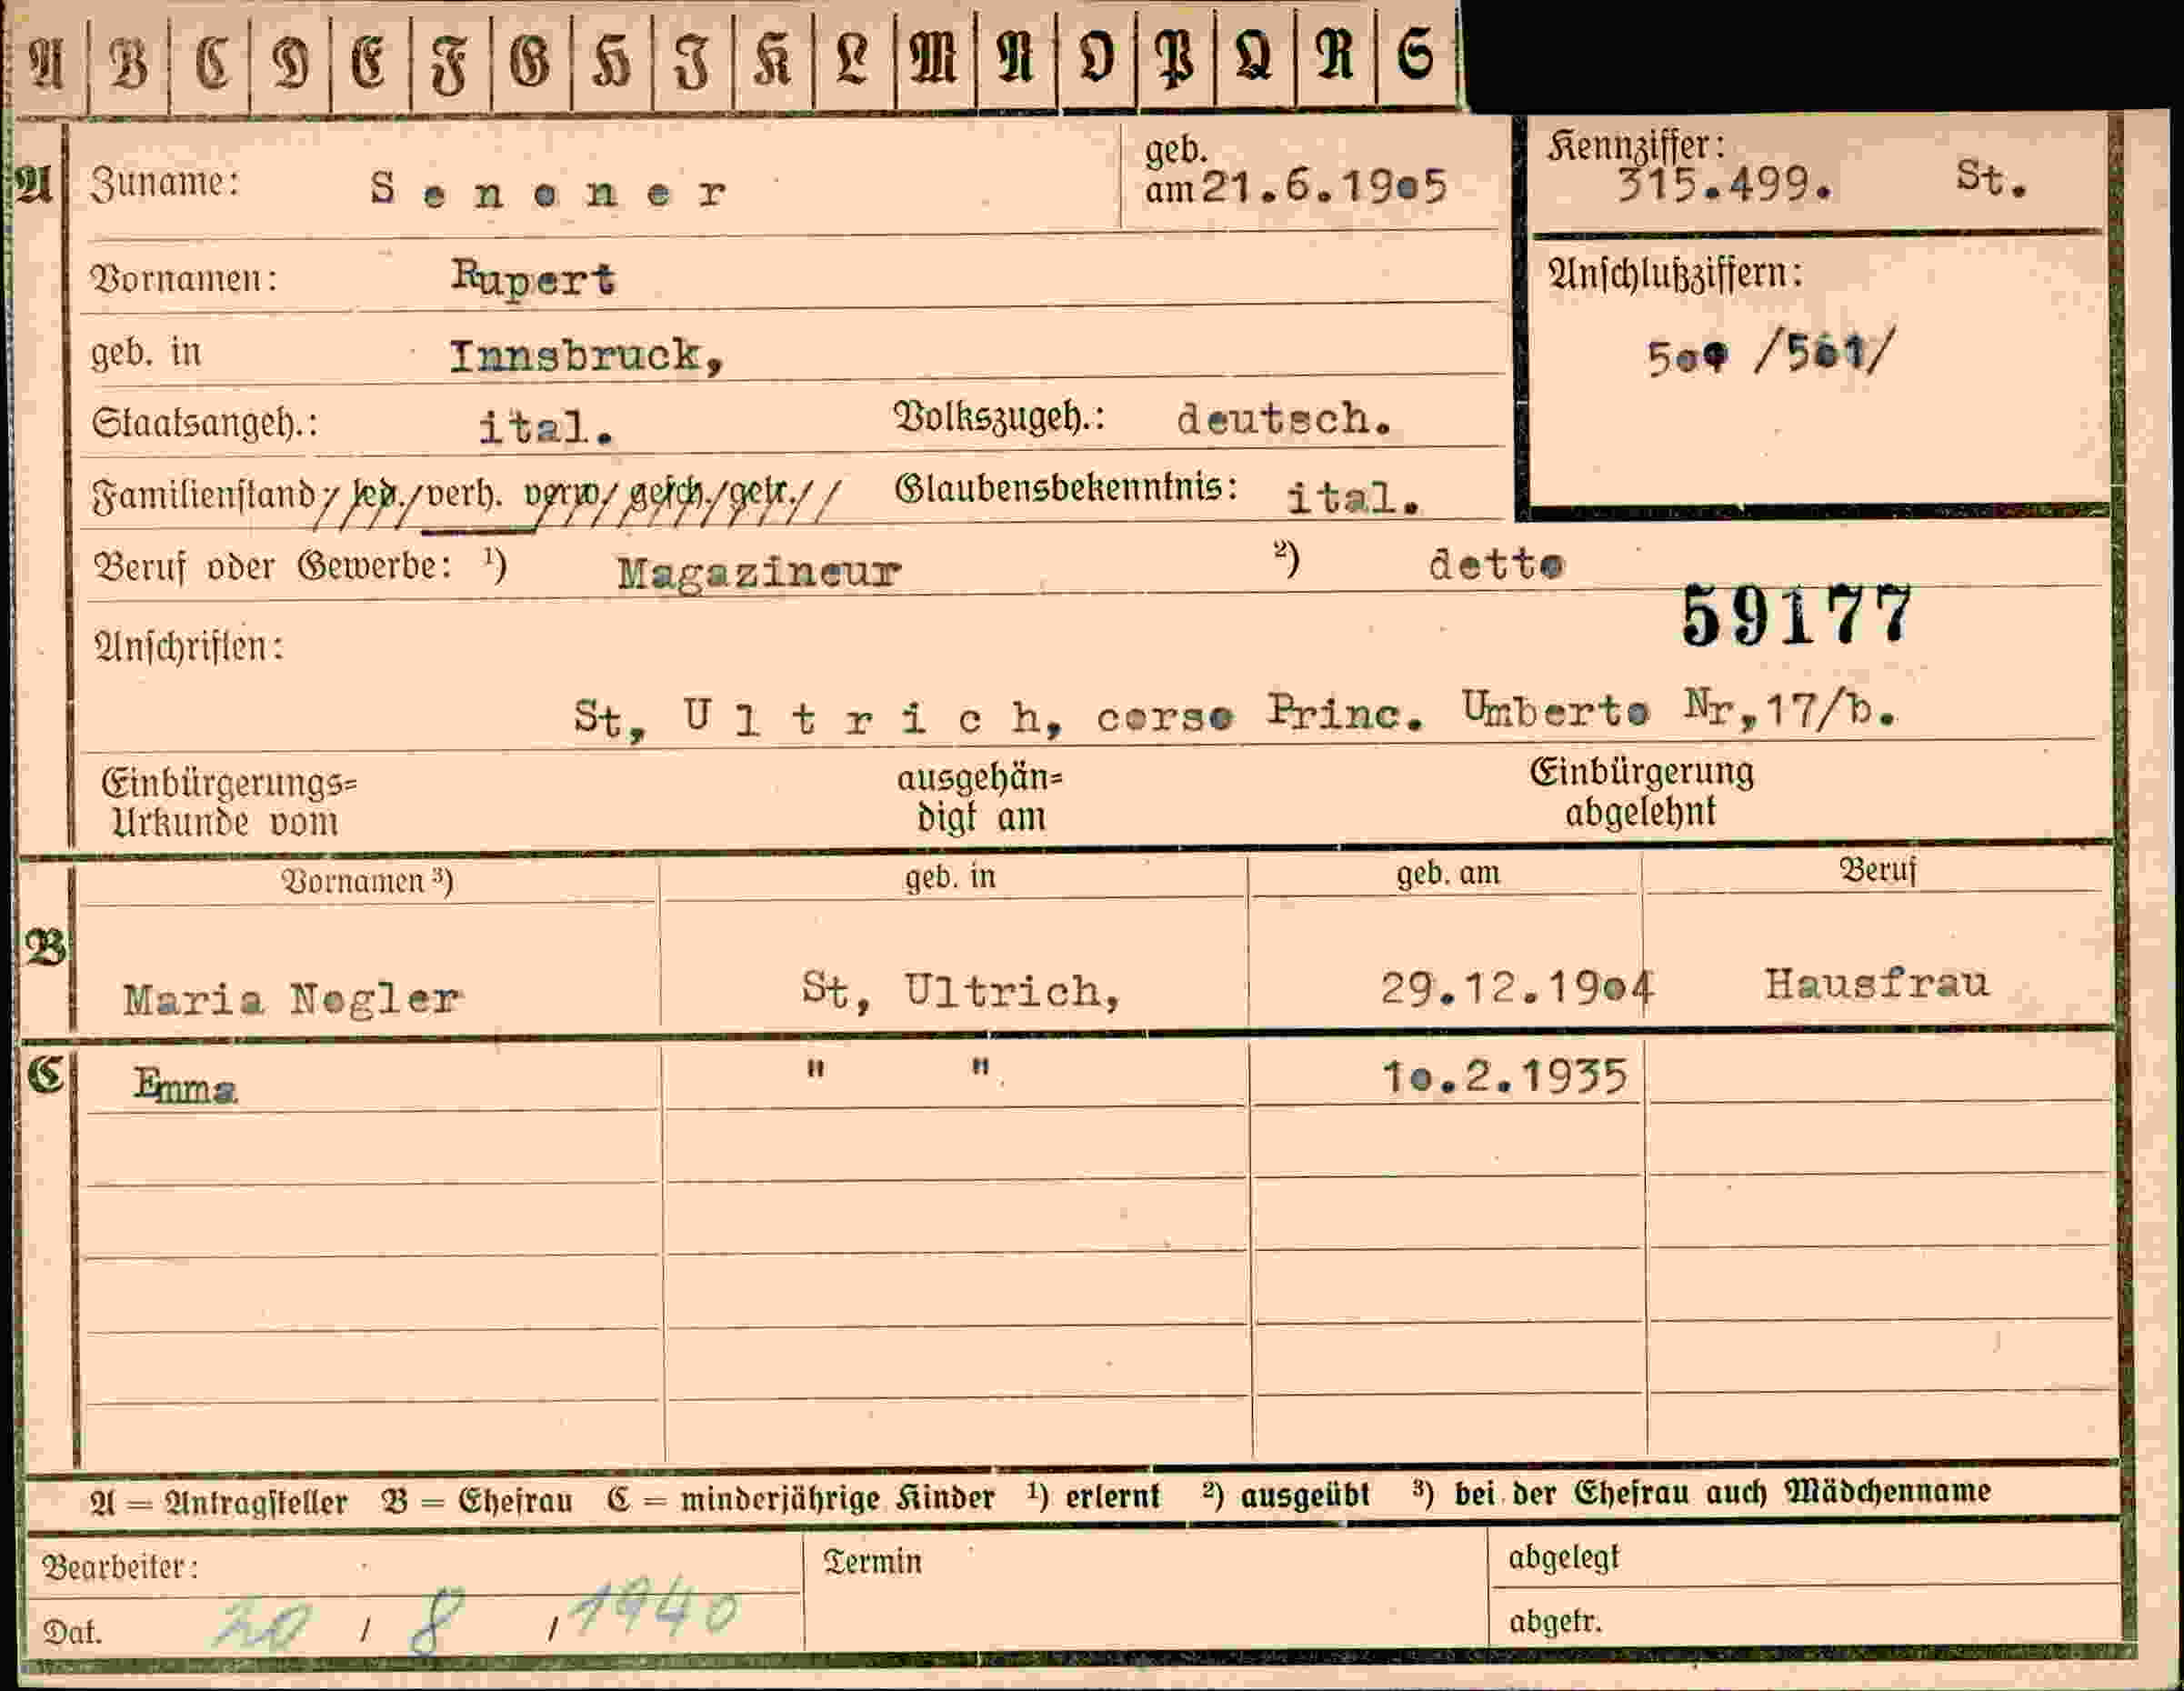 A B C D E F G H I K L M N O P Q R S
A Zuname: Senoner geb. am 21.6.1905 Kennziffer: 315.499. St.
Vornamen: Rupert Anschlußziffern:
geb. in Innsbruck, /501/
Staatsangeh.: ital. Volkszugeh.: deutsch.
Familienstand: led./verh. verw/gesch./getr.// Glaubensbekenntnis: ital.
Beruf oder Gewerbe: ¹) Magazineur ²) detto
59177
Anschriften:
St, Ultrich, corso Princ. Umberto Nr,17/b.
Einbürgerungs= ausgehän= Einbürgerung
Urkunde vom digt am abgelehnt
Vornamen ³) geb. in geb. am Beruf
B
Maria Nogler St, Ultrich, 29.12.1904 Hausfrau
C Emma " " 10.2.1935
A = Antragsteller B = Ehefrau C = minderjährige Kinder ¹) erlernt ²) ausgeübt ³) bei der Ehefrau auch Mädchenname
Bearbeiter: Termin abgelegt
Dat. 20 / 8 / 1940 abgetr.